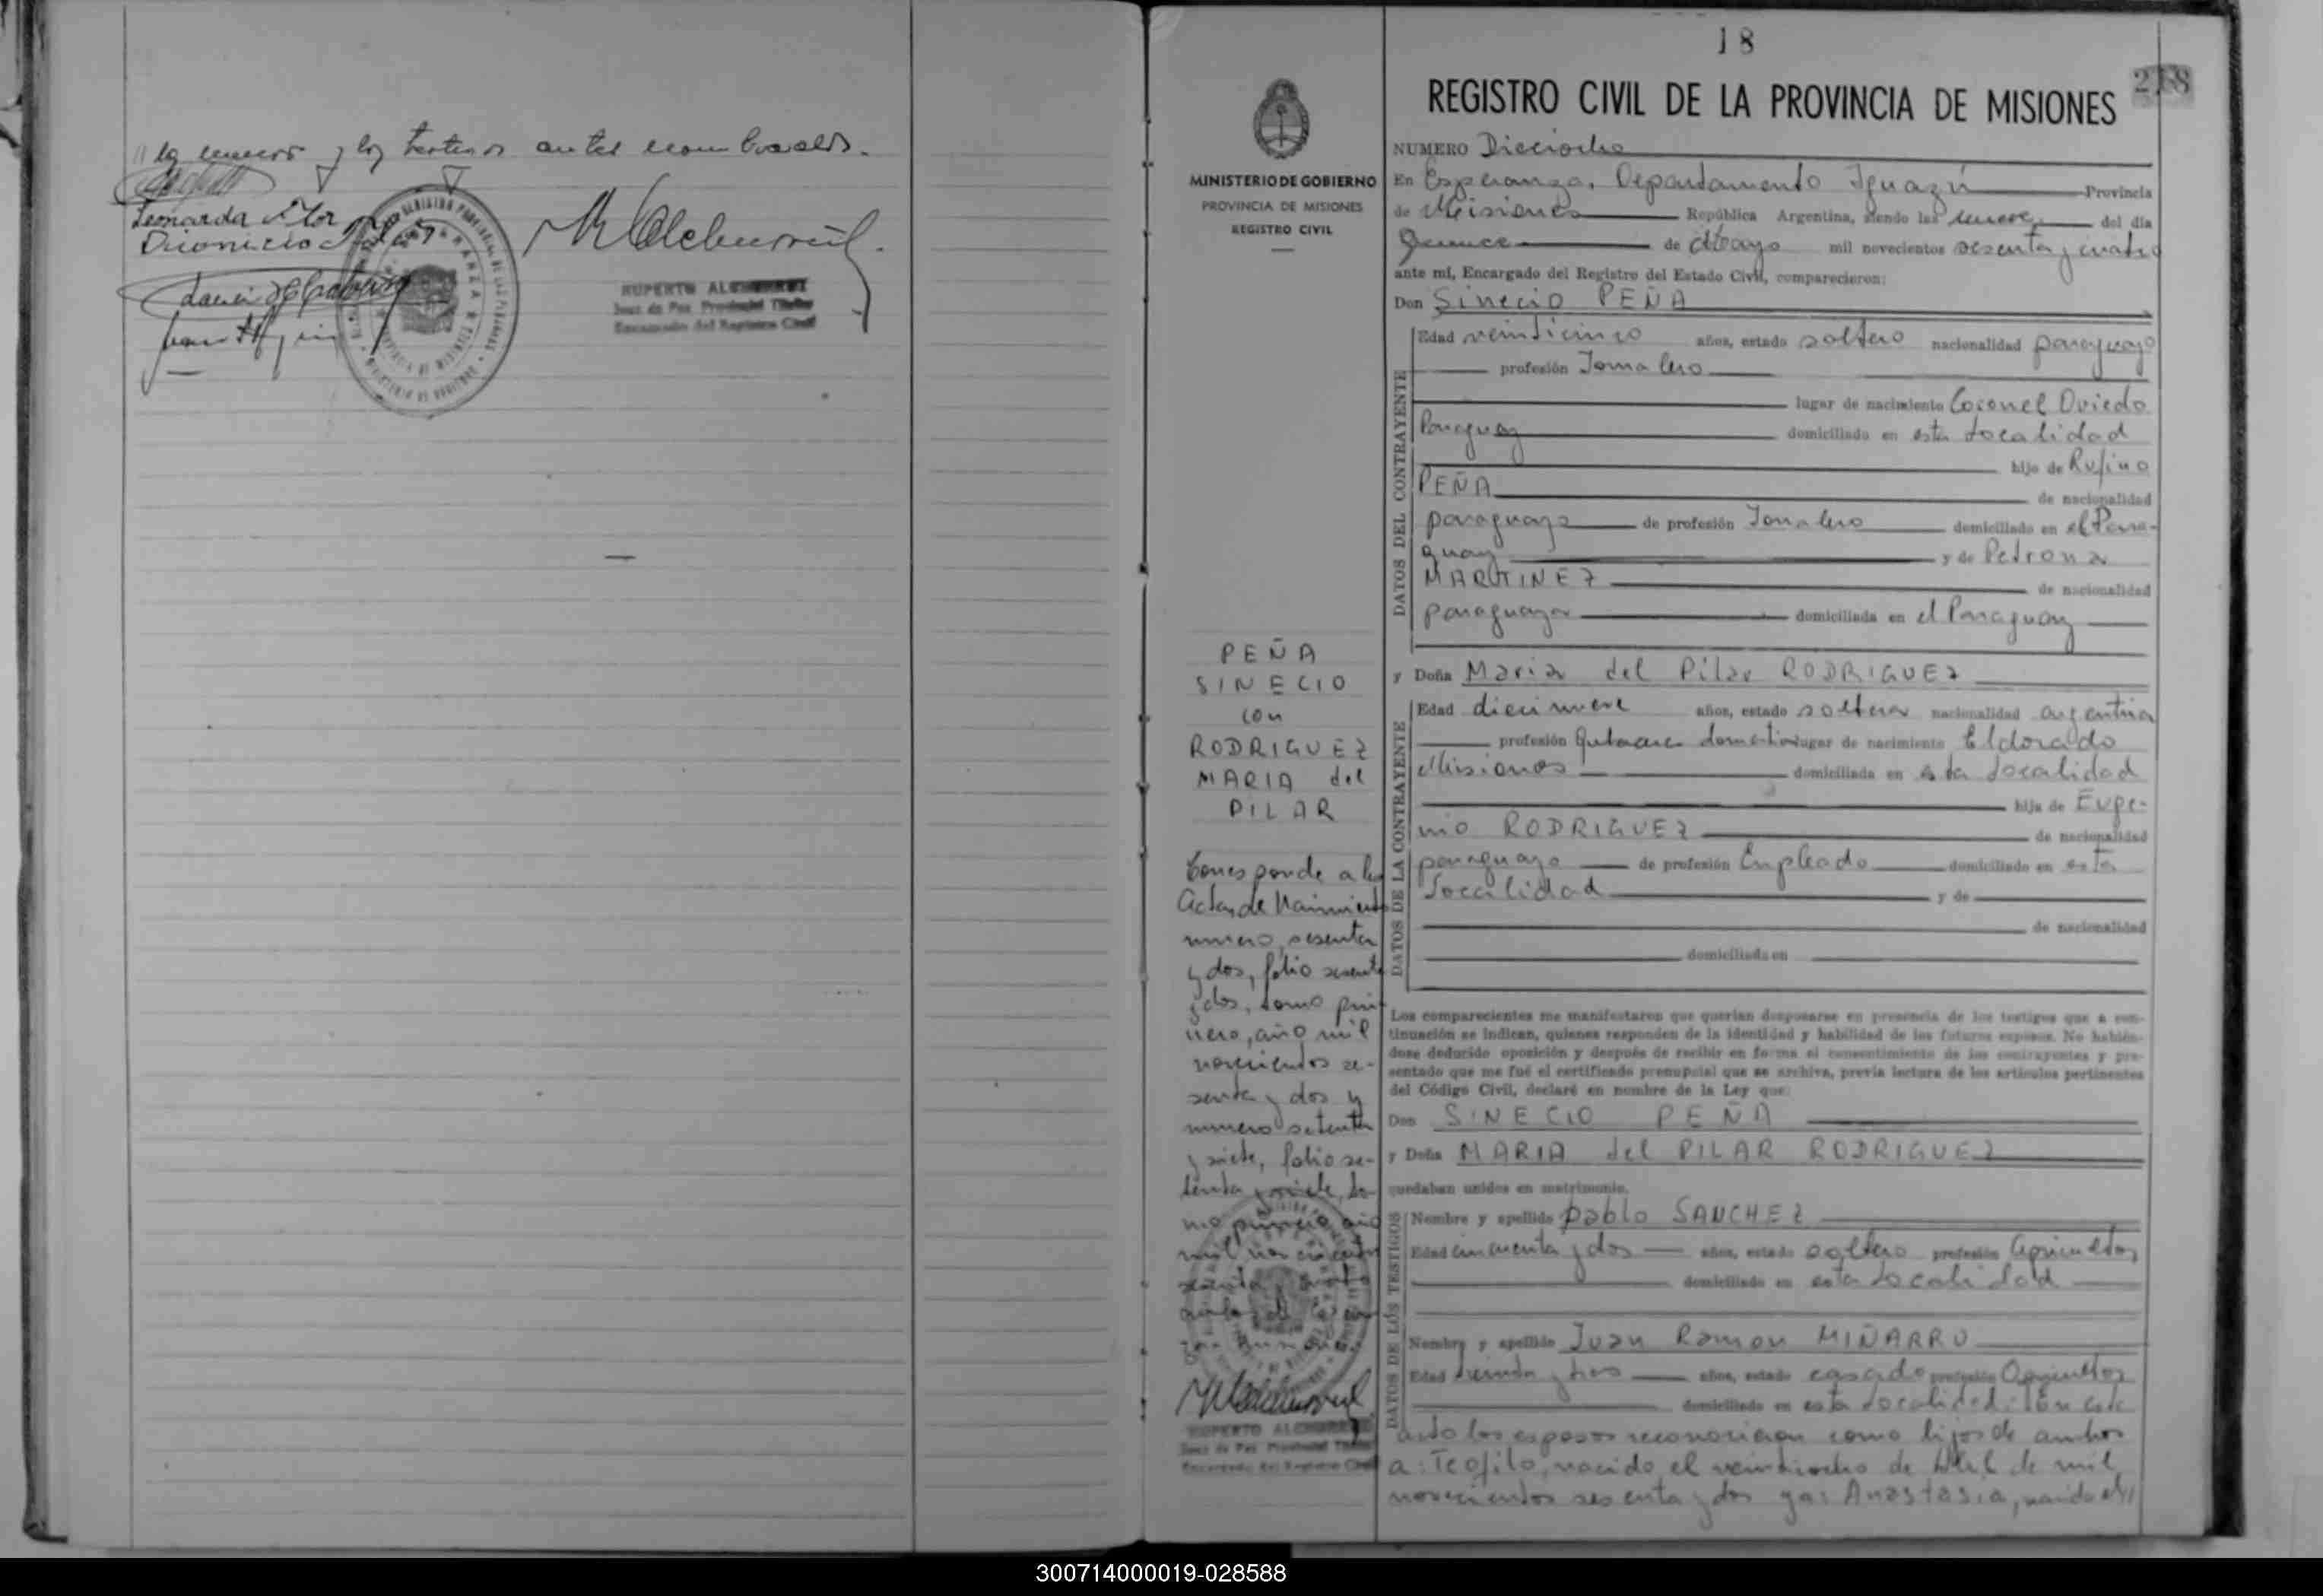 " la menor y los testigos antes nombrados.
Leonarda Flor
Dionicio
RUPERTO ALCHURRUT
Juez de Paz Provincial Titular
Encargado del Registro Civil
18
218
REGISTRO CIVIL DE LA PROVINCIA DE MISIONES
MINISTERIO DE GOBIERNO
PROVINCIA DE MISIONES
REGISTRO CIVIL
NUMERO Dieciocho
En Esperanza, Departamento Iguazú Provincia
de Misiones República Argentina, siendo las nueve del día
Quince de Mayo mil novecientos sesenta y cuatro
ante mí, Encargado del Registro del Estado Civil, comparecieron:
Don Sinecio PEÑA
DATOS DEL CONTRAYENTE
Edad veinticinco años, estado soltero nacionalidad paraguayo
profesión Jornalero
lugar de nacimiento Coronel Oviedo
Paraguay domiciliado en esta Localidad
hijo de Rufino
PEÑA de nacionalidad
paraguayo de profesión Jornalero domiciliado en el Para-
guay y de Petrona
MARTINEZ de nacionalidad
paraguaya domiciliada en el Paraguay
y Doña Maria del Pilar RODRIGUEZ
DATOS DE LA CONTRAYENTE
Edad diecinueve años, estado soltera nacionalidad argentina
profesión Quehaceres domestico lugar de nacimiento Eldorado
Misiones domiciliada en esta Localidad
hija de Euge-
nio RODRIGUEZ de nacionalidad
paraguayo de profesión Empleado domiciliado en esta
Localidad y de
de nacionalidad
domiciliada en
PEÑA
SINECIO
con
RODRIGUEZ
MARIA del
PILAR
Corresponde a las
Actas de Nacimiento
numero sesenta
y dos, folio sesenta
y dos, tomo pri
mero, año mil
novecientos se-
senta y dos y
numero setenta
y siete, folio se-
tenta y siete, to-
mo primero año
mil novecientos
RUPERTO ALCHURRUT
Juez de Paz Provincial Titular
Encargado del Registro Civil
Los comparecientes me manifestaron que querían desposarse en presencia de los testigos que a con-
tinuación se indican, quienes responden de la identidad y habilidad de los futuros esposos. No habién-
dose deducido oposición y después de recibir en forma el consentimiento de los contrayentes y pre-
sentado que me fué el certificado prenupcial que se archiva, previa lectura de los artículos pertinentes
del Código Civil, declaré en nombre de la Ley que:
Don SINECIO PEÑA
y Doña MARIA del PILAR RODRIGUEZ
quedaban unidos en matrimonio.
DATOS DE LOS TESTIGOS
Nombre y apellido Pablo SANCHEZ
Edad cincuenta y dos años, estado soltero profesión Agricultor
domiciliado en esta Localidad
Nombre y apellido Juan Ramon MIÑARRO
Edad treinta y tres años, estado casado profesión Agricultor
domiciliado en esta Localidad. En este
acto los esposos reconocieron como hijos de ambos
a: Teofilo, nacido el veintiocho de Abril de mil
novecientos sesenta y dos y a: Anastasia, nacida el //
300714000019-028588